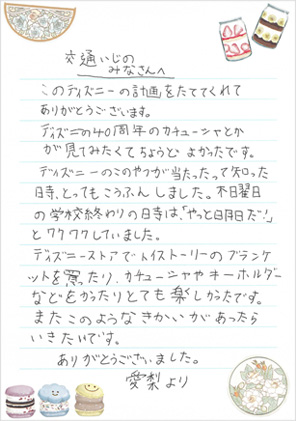 交通いじの
みなさんへ
このディズニーの計画をたててくれて
ありがとうございます。
ディズニの40周年のカチューシャとか
が見てみたくてちょうどよかったです。
ディズニーのこのやつが当たったって知った
時、とってもこうふんしました。木曜日
の学校終わりの日時は、「やっと明日だ!」
とワクワクしていました。
ディズニーストアでトイストーリーのブランケ
ットを買ったり、カチューシャやキーホルダー
などをかったりとても楽しかったです。
またこのようなきかいがあったら
いきたいです。
ありがとうございました。
愛梨より